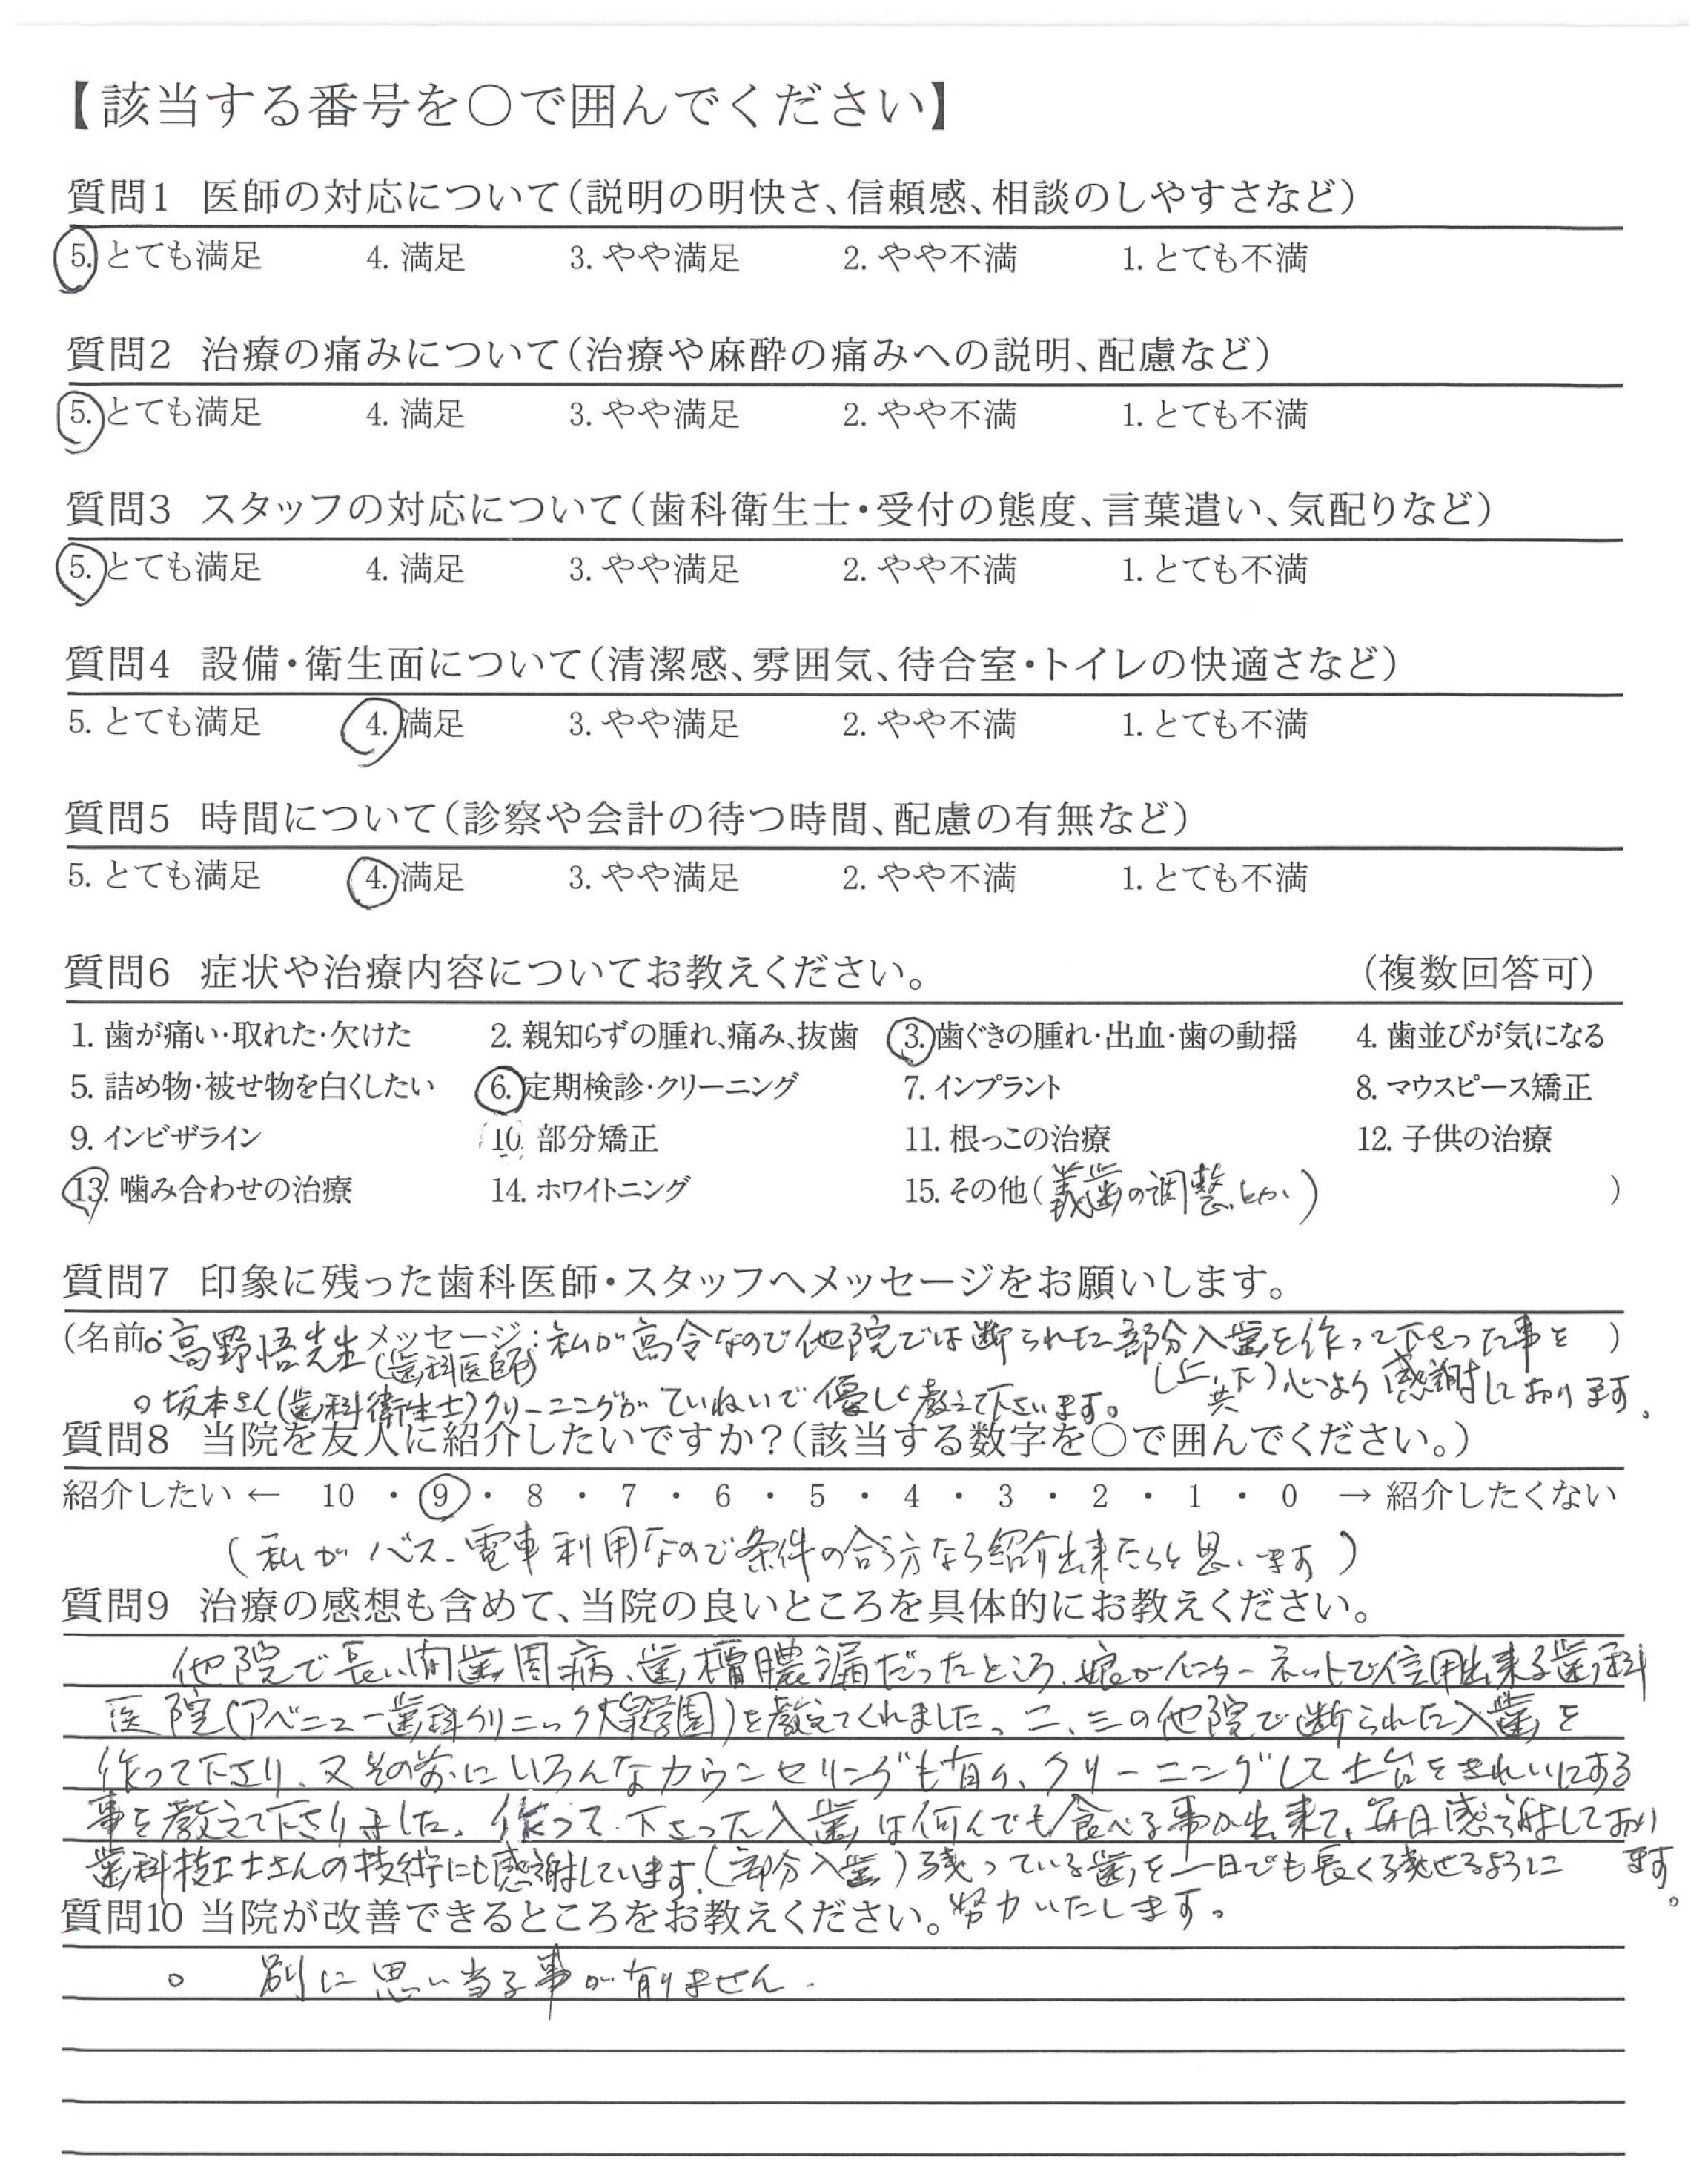 【該当する番号を○で囲んでください】
質問1 医師の対応について(説明の明快さ、信頼感、相談のしやすさなど)
5. とても満足 4. 満足 3. やや満足 2. やや不満 1. とても不満
質問2 治療の痛みについて(治療や麻酔の痛みへの説明、配慮など)
5. とても満足 4. 満足 3. やや満足 2. やや不満 1. とても不満
質問3 スタッフの対応について(歯科衛生士・受付の態度、言葉遣い、気配りなど)
5. とても満足 4. 満足 3. やや満足 2. やや不満 1. とても不満
質問4 設備・衛生面について(清潔感、雰囲気、待合室・トイレの快適さなど)
5. とても満足 4. 満足 3. やや満足 2. やや不満 1. とても不満
質問5 時間について(診察や会計の待つ時間、配慮の有無など)
5. とても満足 4. 満足 3. やや満足 2. やや不満 1. とても不満
質問6 症状や治療内容についてお教えください。 (複数回答可)
1. 歯が痛い・取れた・欠けた 2. 親知らずの腫れ、痛み、抜歯 3. 歯ぐきの腫れ・出血・歯の動揺 4. 歯並びが気になる
5. 詰め物・被せ物を白くしたい 6. 定期検診・クリーニング 7. インプラント 8. マウスピース矯正
9. インビザライン 10. 部分矯正 11. 根っこの治療 12. 子供の治療
13. 噛み合わせの治療 14. ホワイトニング 15. その他(義歯の調整とか) )
質問7 印象に残った歯科医師・スタッフへメッセージをお願いします。
(名前:高野悟先生(歯科医師) メッセージ:私が高令なので他院では断られた部分入歯を作って下さった事を )
(上、下共)心より感謝しております。
○坂本さん(歯科衛生士)クリーニングがていねいで優しく教えて下さいます。
質問8 当院を友人に紹介したいですか?(該当する数字を○で囲んでください。)
紹介したい ← 10 ・ 9 ・ 8 ・ 7 ・ 6 ・ 5 ・ 4 ・ 3 ・ 2 ・ 1 ・ 0 → 紹介したくない
(私がバス、電車利用なので条件の合う方なら紹介出来たらと思います)
質問9 治療の感想も含めて、当院の良いところを具体的にお教えください。
他院で長い間歯周病、歯槽膿漏だったところ、娘がインターネットで信用出来る歯科
医院(アベニュー歯科クリニック大泉学園)を教えてくれました。二、三の他院で断られた入歯を
作って下さり、又その前にいろんなカウンセリングも有り、クリーニングして土台をきれいにする
事を教えて下さりました。作って下さった入歯は何んでも食べる事が出来て、毎日感謝しており
ます。
歯科技工士さんの技術にも感謝しています。(部分入歯)残っている歯を一日でも長く残せるように
努力いたします。
質問10 当院が改善できるところをお教えください。
○ 別に思い当る事が有りません.